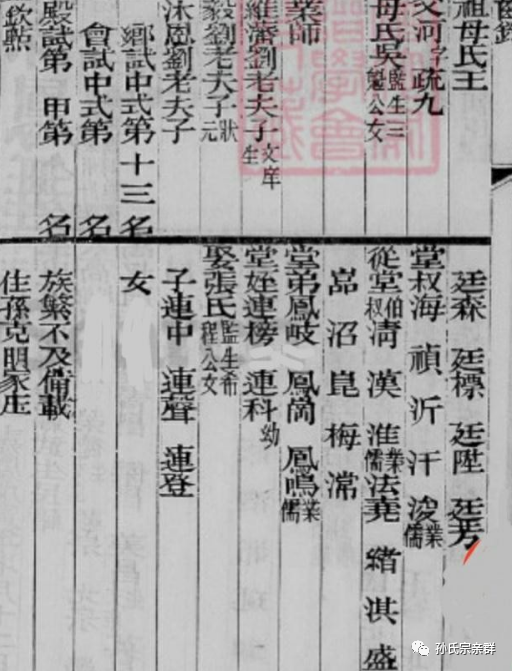 齒錄
祖母氏王
父河字疏九
母氏吳監生三魁公女
業師
維藩劉老夫子文庠生
毅劉老夫子狀元
沐恩劉老夫子
鄉試中式第十三名
會試中式第 名
殿試第 甲第 名
欽點
廷森 廷標 廷陞 廷芳
堂叔海 禎 沂 汗 浚業儒
從堂伯叔清 漢 淮業儒 法堯 緒 淇 盛
崑 沼 崑 梅 常
堂弟鳳岐 鳳崗 鳳鳴業儒
堂姪連榜 連科幼
娶張氏監生希程公女
子連中 連聲 連登
女
族繁不及備載
住孫克明家庄
孙氏宗亲群